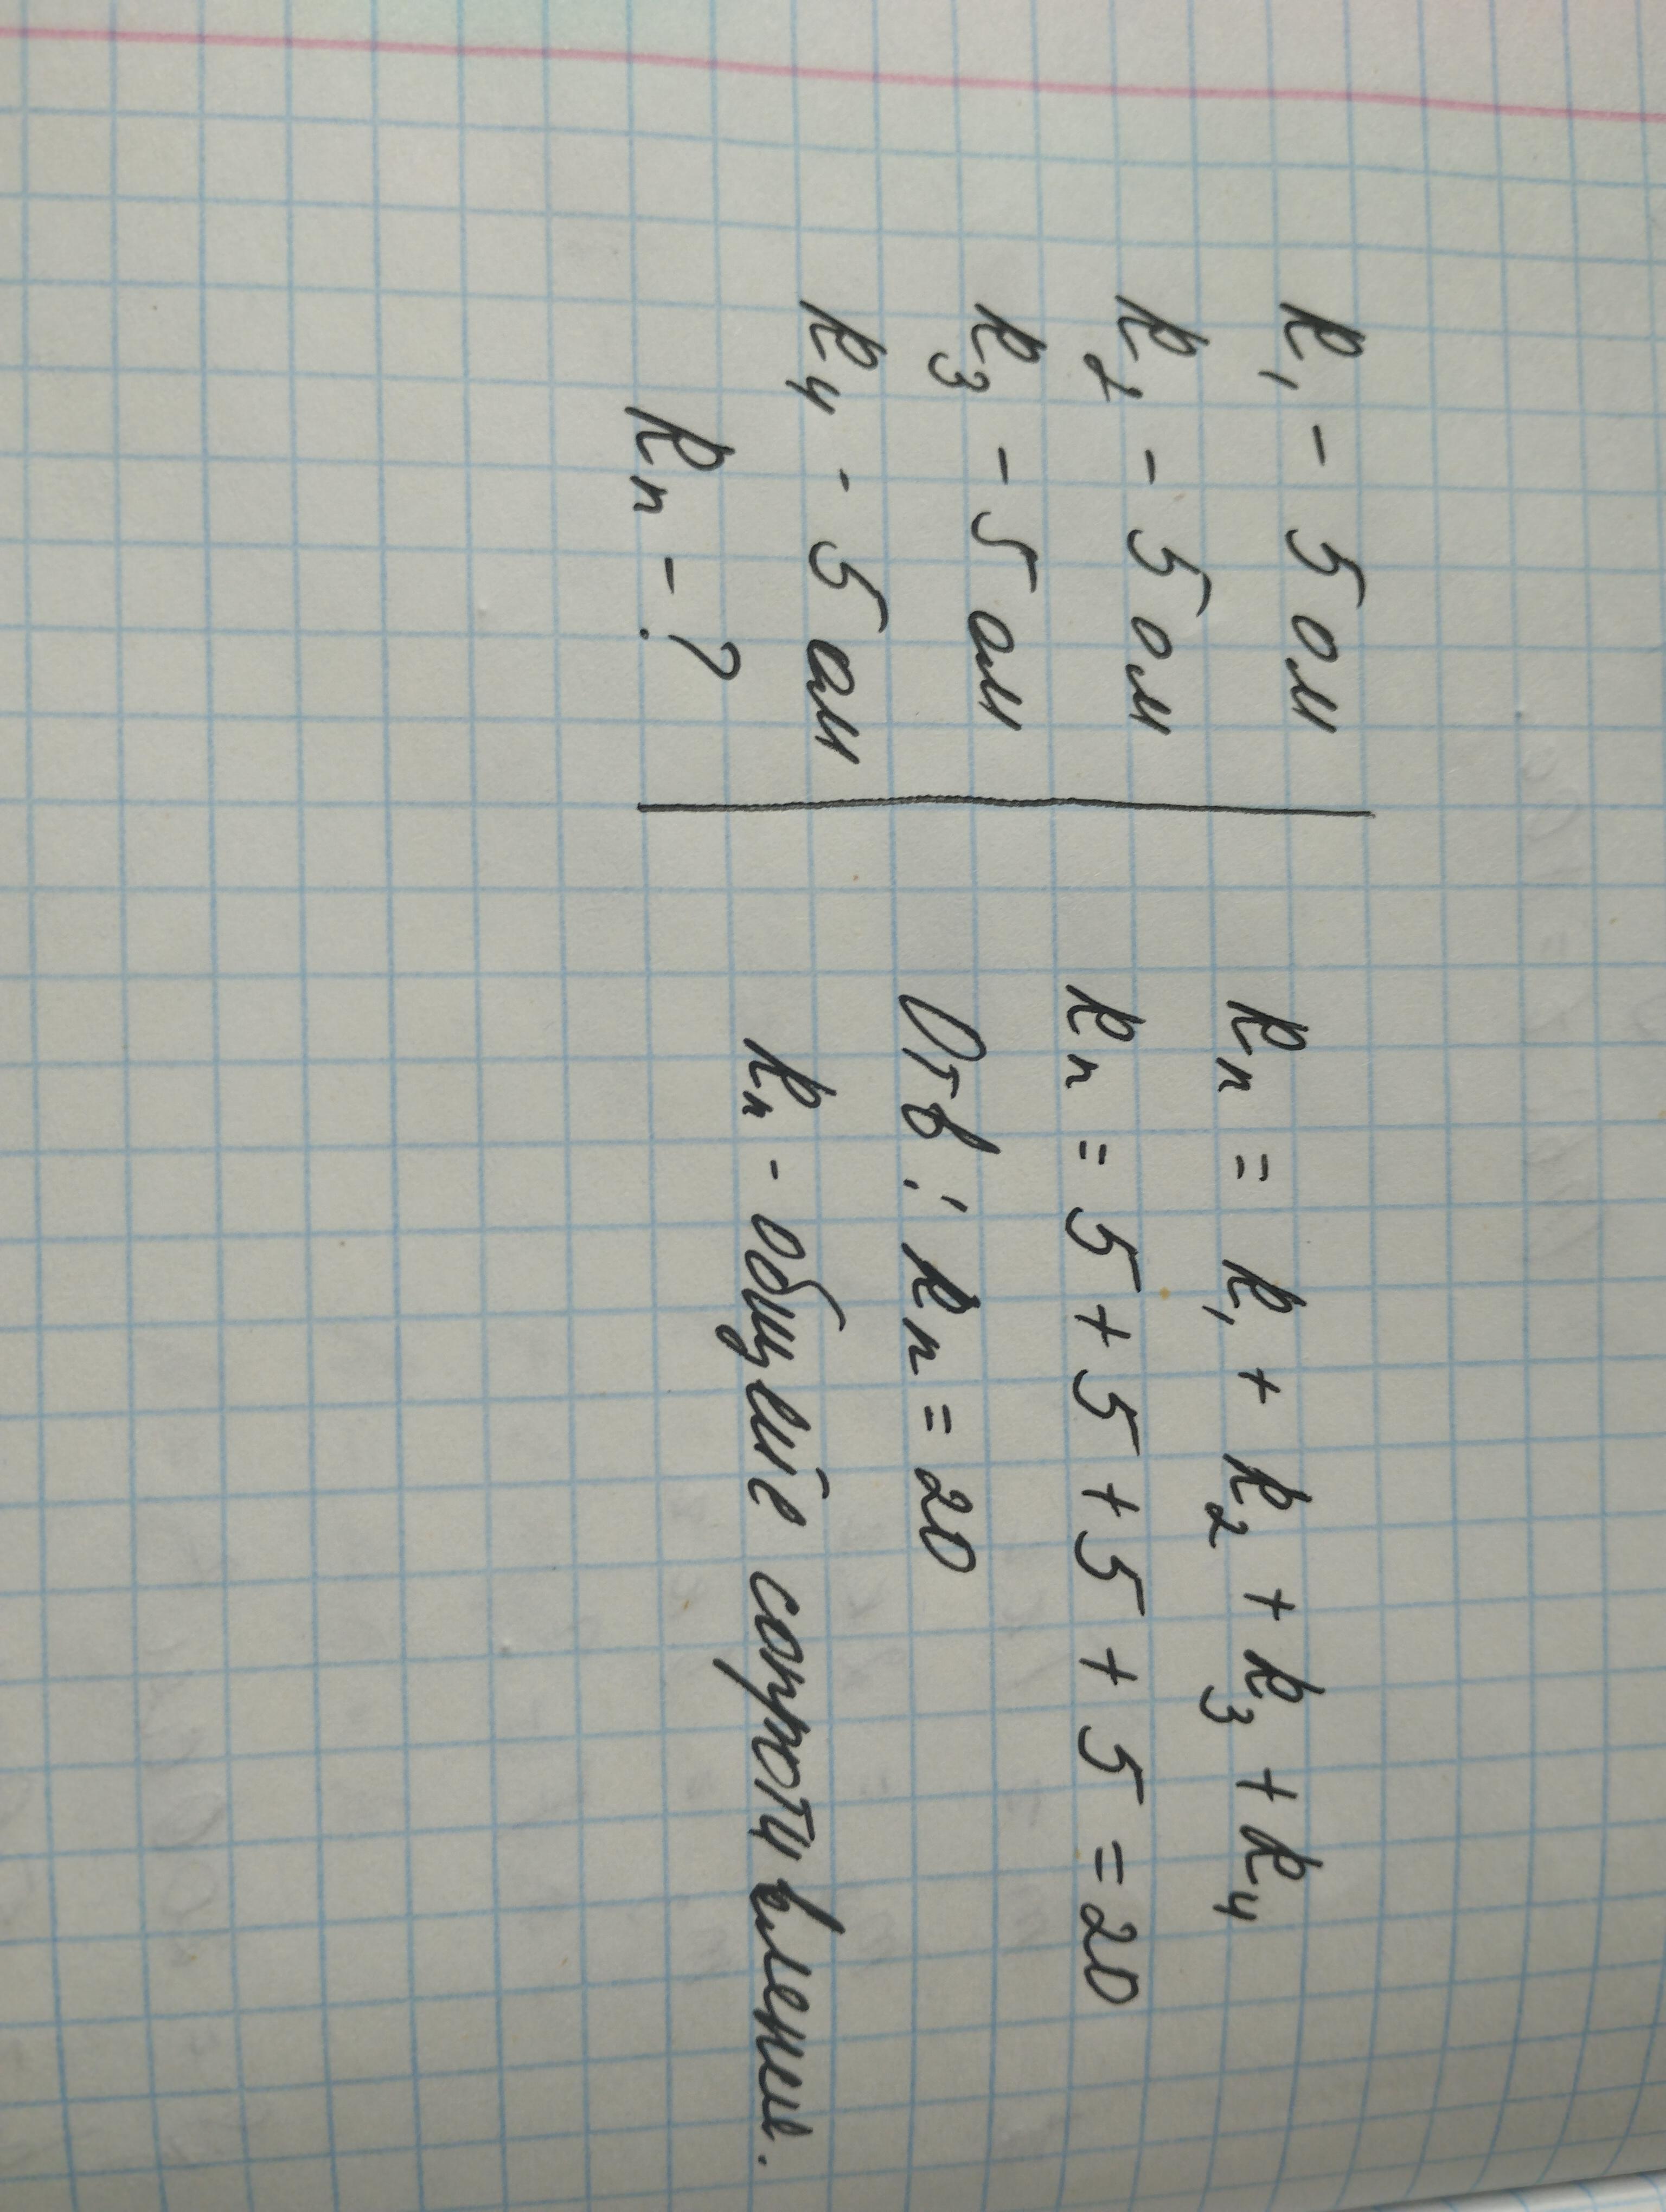 R₁ - 5 ом
R₂ - 5 ом
R₃ - 5 ом
R₄ - 5 ом
Rn - ?
Rn = R₁ + R₂ + R₃ + R₄
Rn = 5 + 5 + 5 + 5 = 20
Отв: Rn = 20
Rn - общее сопротивление.